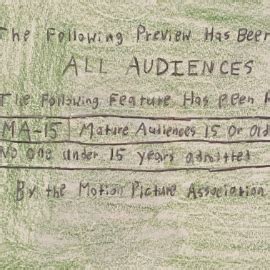 The Following Preview Has Been
ALL AUDIENCES
The Following Feature Has Been
MA-15 Mature Audiences 15 Or Old
No one under 15 years admitted
By the Motion Picture Association